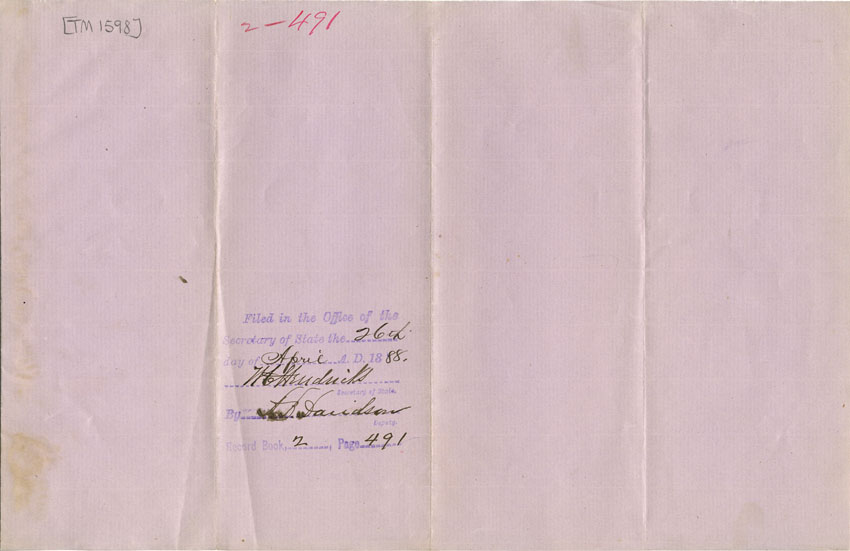 [TM 1598]
2-491
Filed in the Office of the
Secretary of State the 26th
day of April A. D. 1888.
W C Hendricks
Secretary of State.
By Davidson
Deputy.
Record Book, 2, Page 491